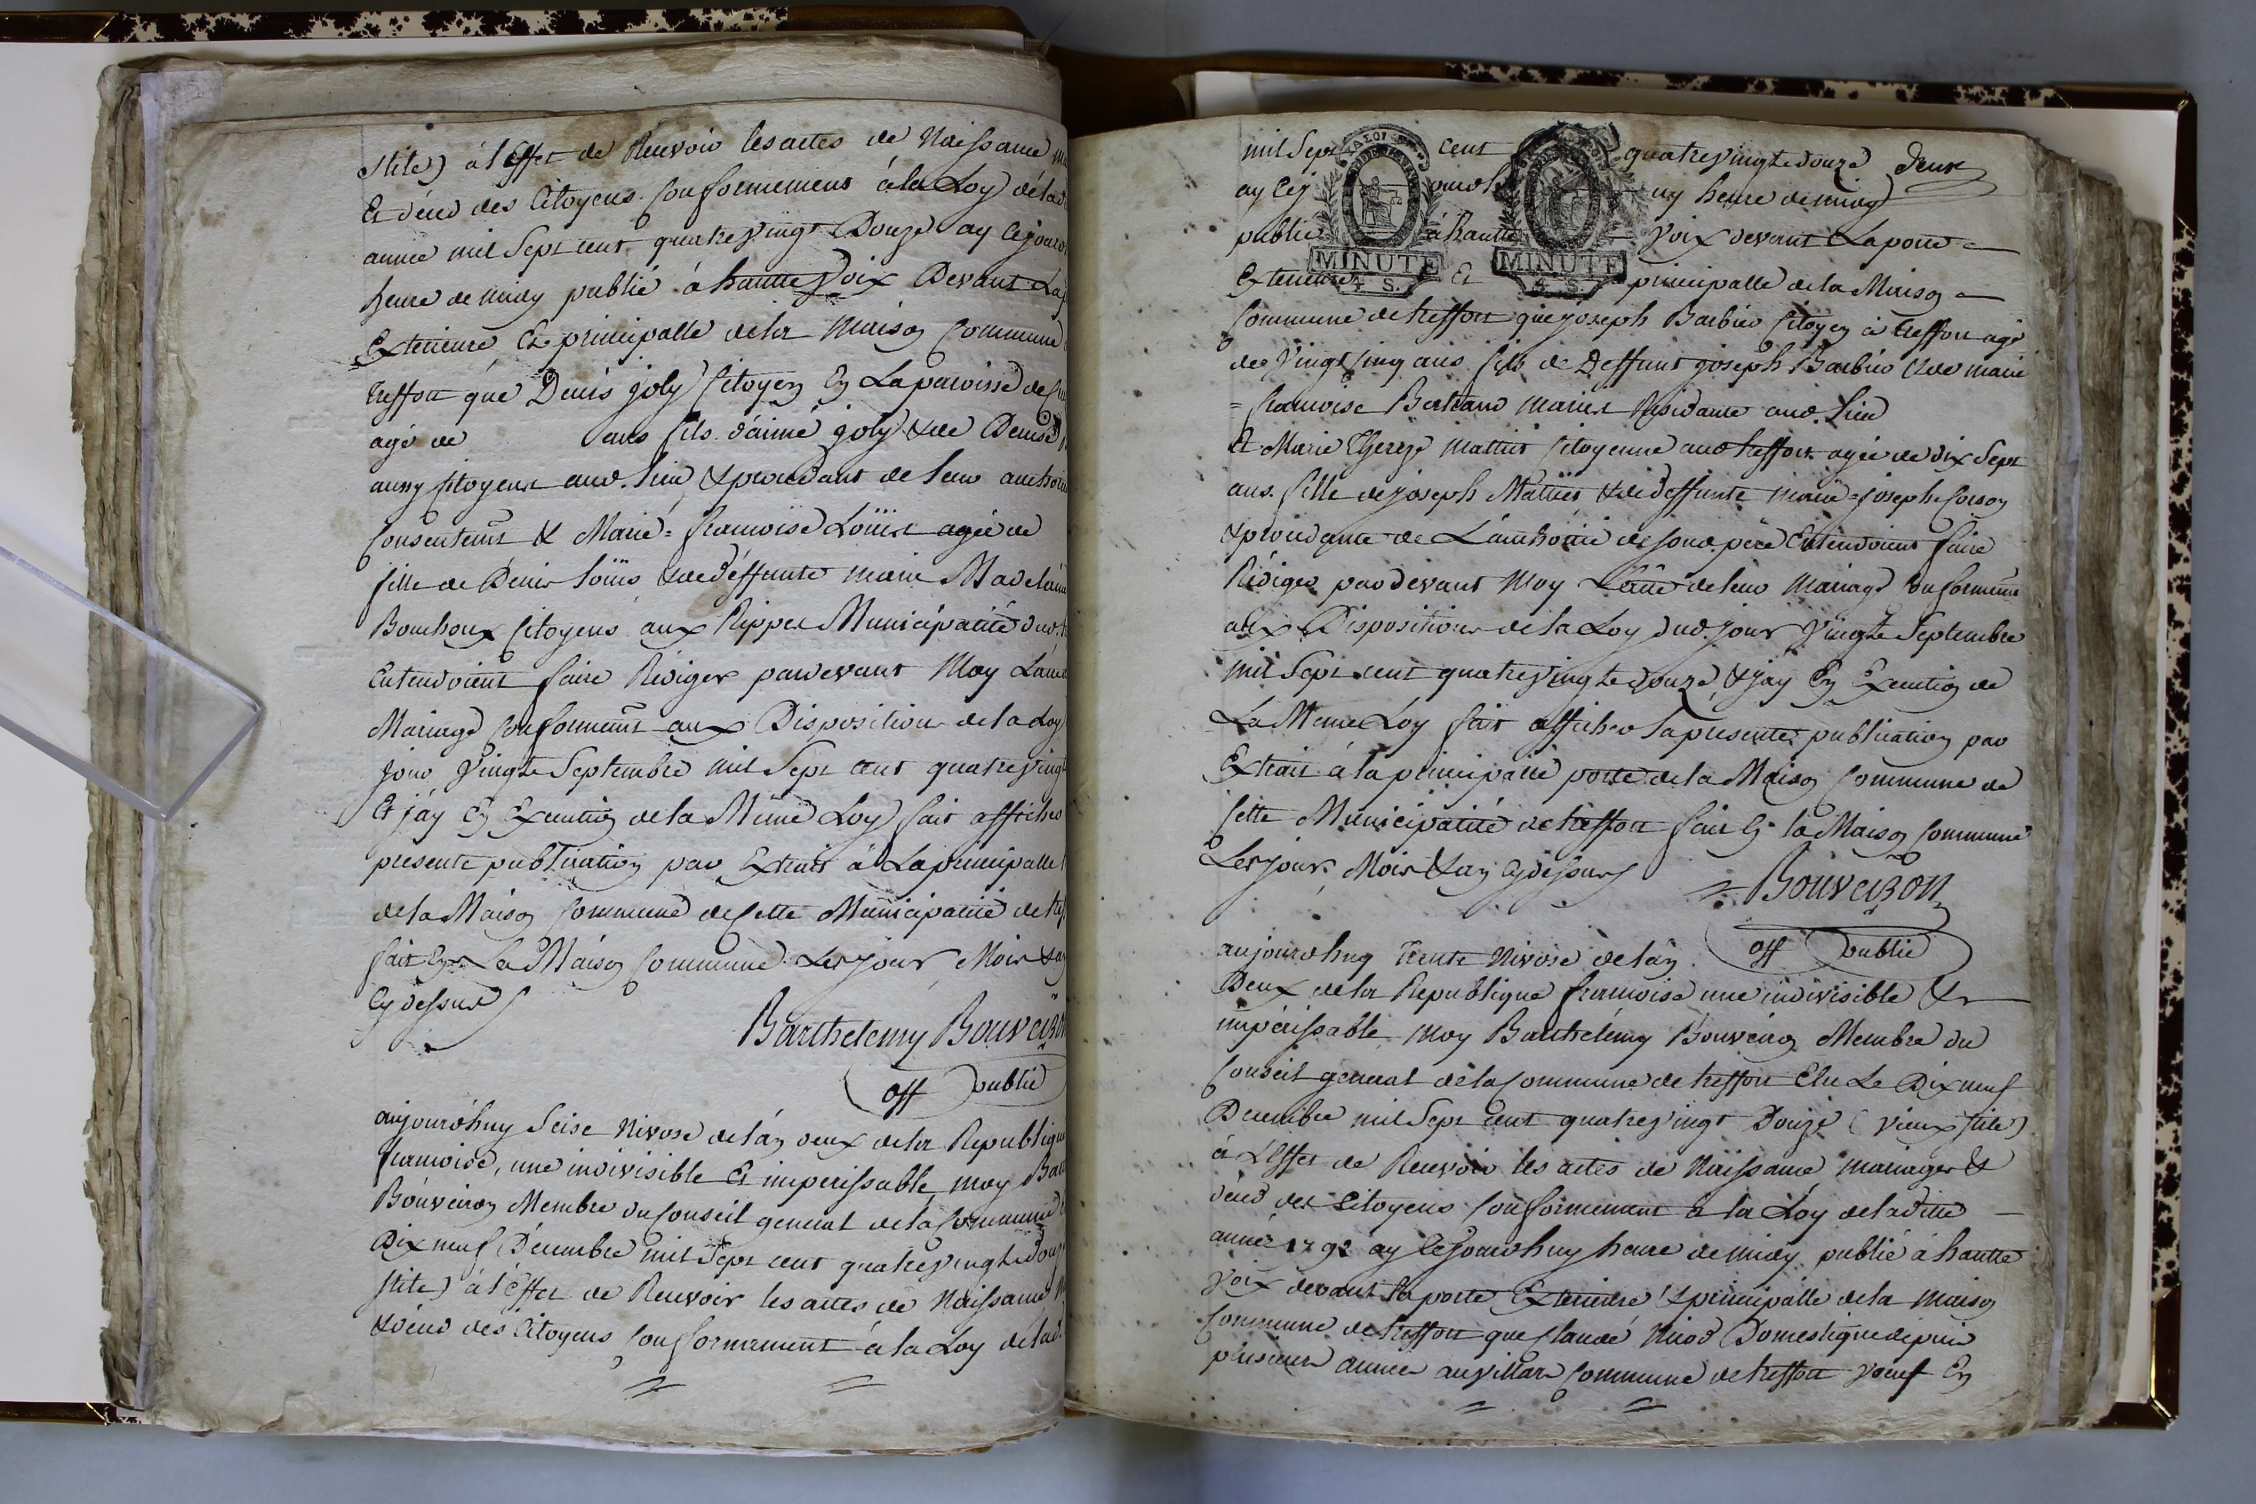 stile) à l'Effet de Recevoir les actes de Naissance
Et décd des Citoyens Conformement à la Loy de lad
année mil Sept cent quatrevingt Douze ay cejourd
heure de midy publié à hautte Voix Devant La
Exterieure Et principalle de la Maison Commune
treffort que Denis joly Citoyen En La paroisse de
agé de ans fils d'aimé joly & de Denise
aussy Citoyens aud. lieu & procedant de leur authorité
Consentemt & Marie = francoise Loüis agée de
fille de Denis loüis & de deffunte marie Madelaine
Bouchoux Citoyens aux Rippes Municipalité dud.
Entendoient faire Rédiger pardevant Moy L'acte
Mariage Conformemt aux Disposition de la Loy
jour Vingte Septembre mil Sept cent quatrevingt
Et j'ay En Execution de la Même Loy fait afficher
presente publication par Extrait à La principalle
de la Maison Commune de Cette Municipalité de tref
fait En La Maison Commune Les jour Mois & an
Cy dessus
Barthelemy Bouveiron
off public
aujourd'huy Seise Nivose de l'an deux de la Republique
francoise, une indivisible Et imperissable, moy Bar
Bouveiron Membre du Conseil general de la Commune
Dix neuf Décembre mil Sept cent quatrevingte Douze
stile) à l'Effet de Recevoir les actes de Naissance
& décd des Citoyens Conformement à la Loy de lad.
mil Sept cent quatrevingte douze Deux
ay Cej ourdh uy heure de midy
publié à hautte Voix devant La porte
MINUTE MINUTE
Exterieure Et principalle de la Maison
4 S. 4 S.
Commune de treffort que joseph Barbier Citoyen à treffort agé
de Vingt Cinq ans fils de Deffunt joseph Barbier & de marie
= francoise Bertrand mariés Residante aud. lieu
Et Marie Thereze mattiet Citoyenne aud treffort agée de dix Sept
ans fille de joseph Mattiet & de deffunte marie = joseph
& procedante de L'authorité de sond. père Entendoient faire
Rédiger pardevant Moy L'acte de leur Mariage Conformemt
aux Disposition de la Loy dud. jour Vingte Septembre
mil Sept cent quatrevingte douze, & j'ay En Execution de
La Même Loy fait afficher la presente publication par
Extrait à la principalle porte de la Maison Commune de
Cette Municipalité de treffort fait En la Maison Commune
Les jour Mois & an Cy dessus
Bouveiron
off public
aujourdhuy Trente Nivose de l'an
Deux de la Republique francoise une indivisible &
impérissable moy Barthélemy Bouveiron Membre du
Conseil general de la Commune de treffort Elu Le Dix neuf
Decembre mil Sept cent quatrevingt Douze (Vieux stile)
à L'Effet de Recevoir les actes de Naissance mariages &
décd des Citoyens Conformement à la Loy de laditte
année 1792 ay Cejourdhuy heure de midy publié à hautte
Voix devant la porte Exterieure & principalle de la maison
Commune de treffort que Claude Nicod Domestique depuis
plusieurs années au villars Commune de treffort Veuf En